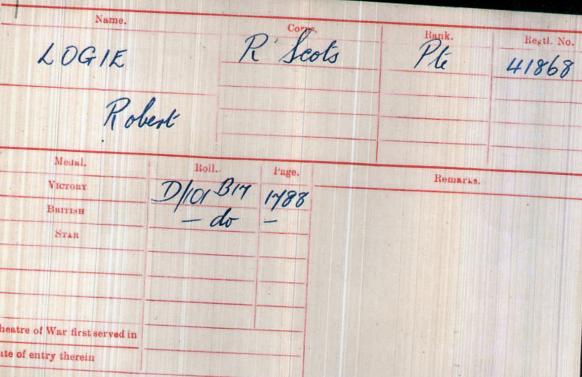 Name. Corps. Rank. Regtl. No.
LOGIE R Scots Pte 41868
Robert
Medal. Roll. Page. Remarks.
VICTORY D/101 B17 1788
BRITISH – do –
STAR
heatre of War first served in
ate of entry therein